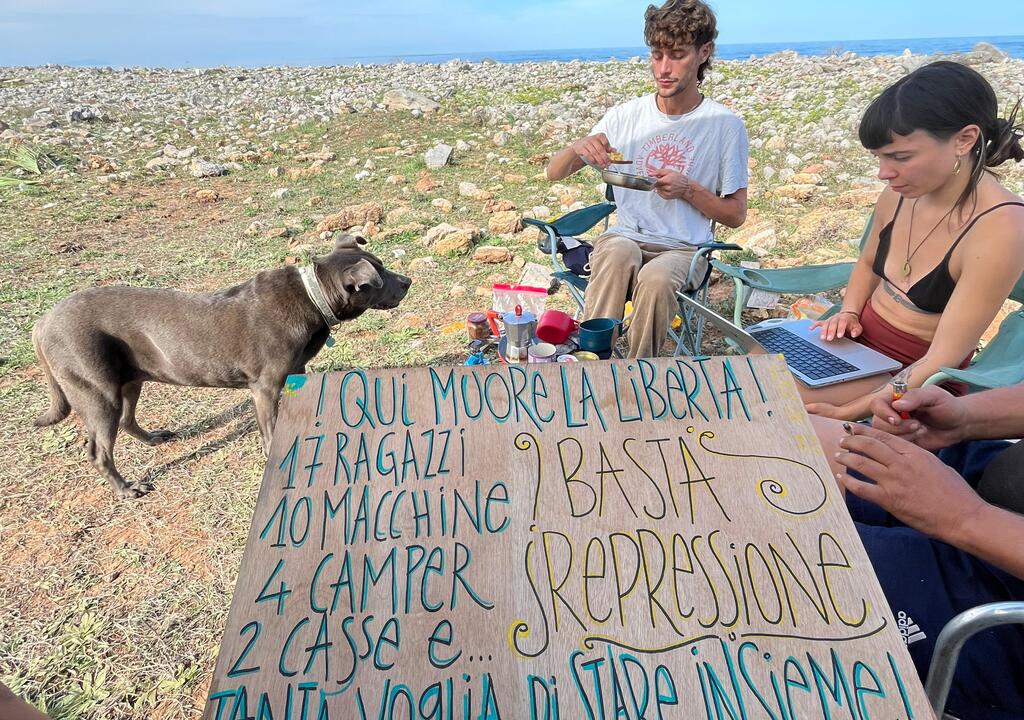 ! QUI MUORE LA LIBERTA'!
17 RAGAZZI
10 MACCHINE
4 CAMPER
2 CASSE E...
BASTA
REPRESSIONE
TANTA VOGLIA DI STARE INSIEME!
Timberland
adidas